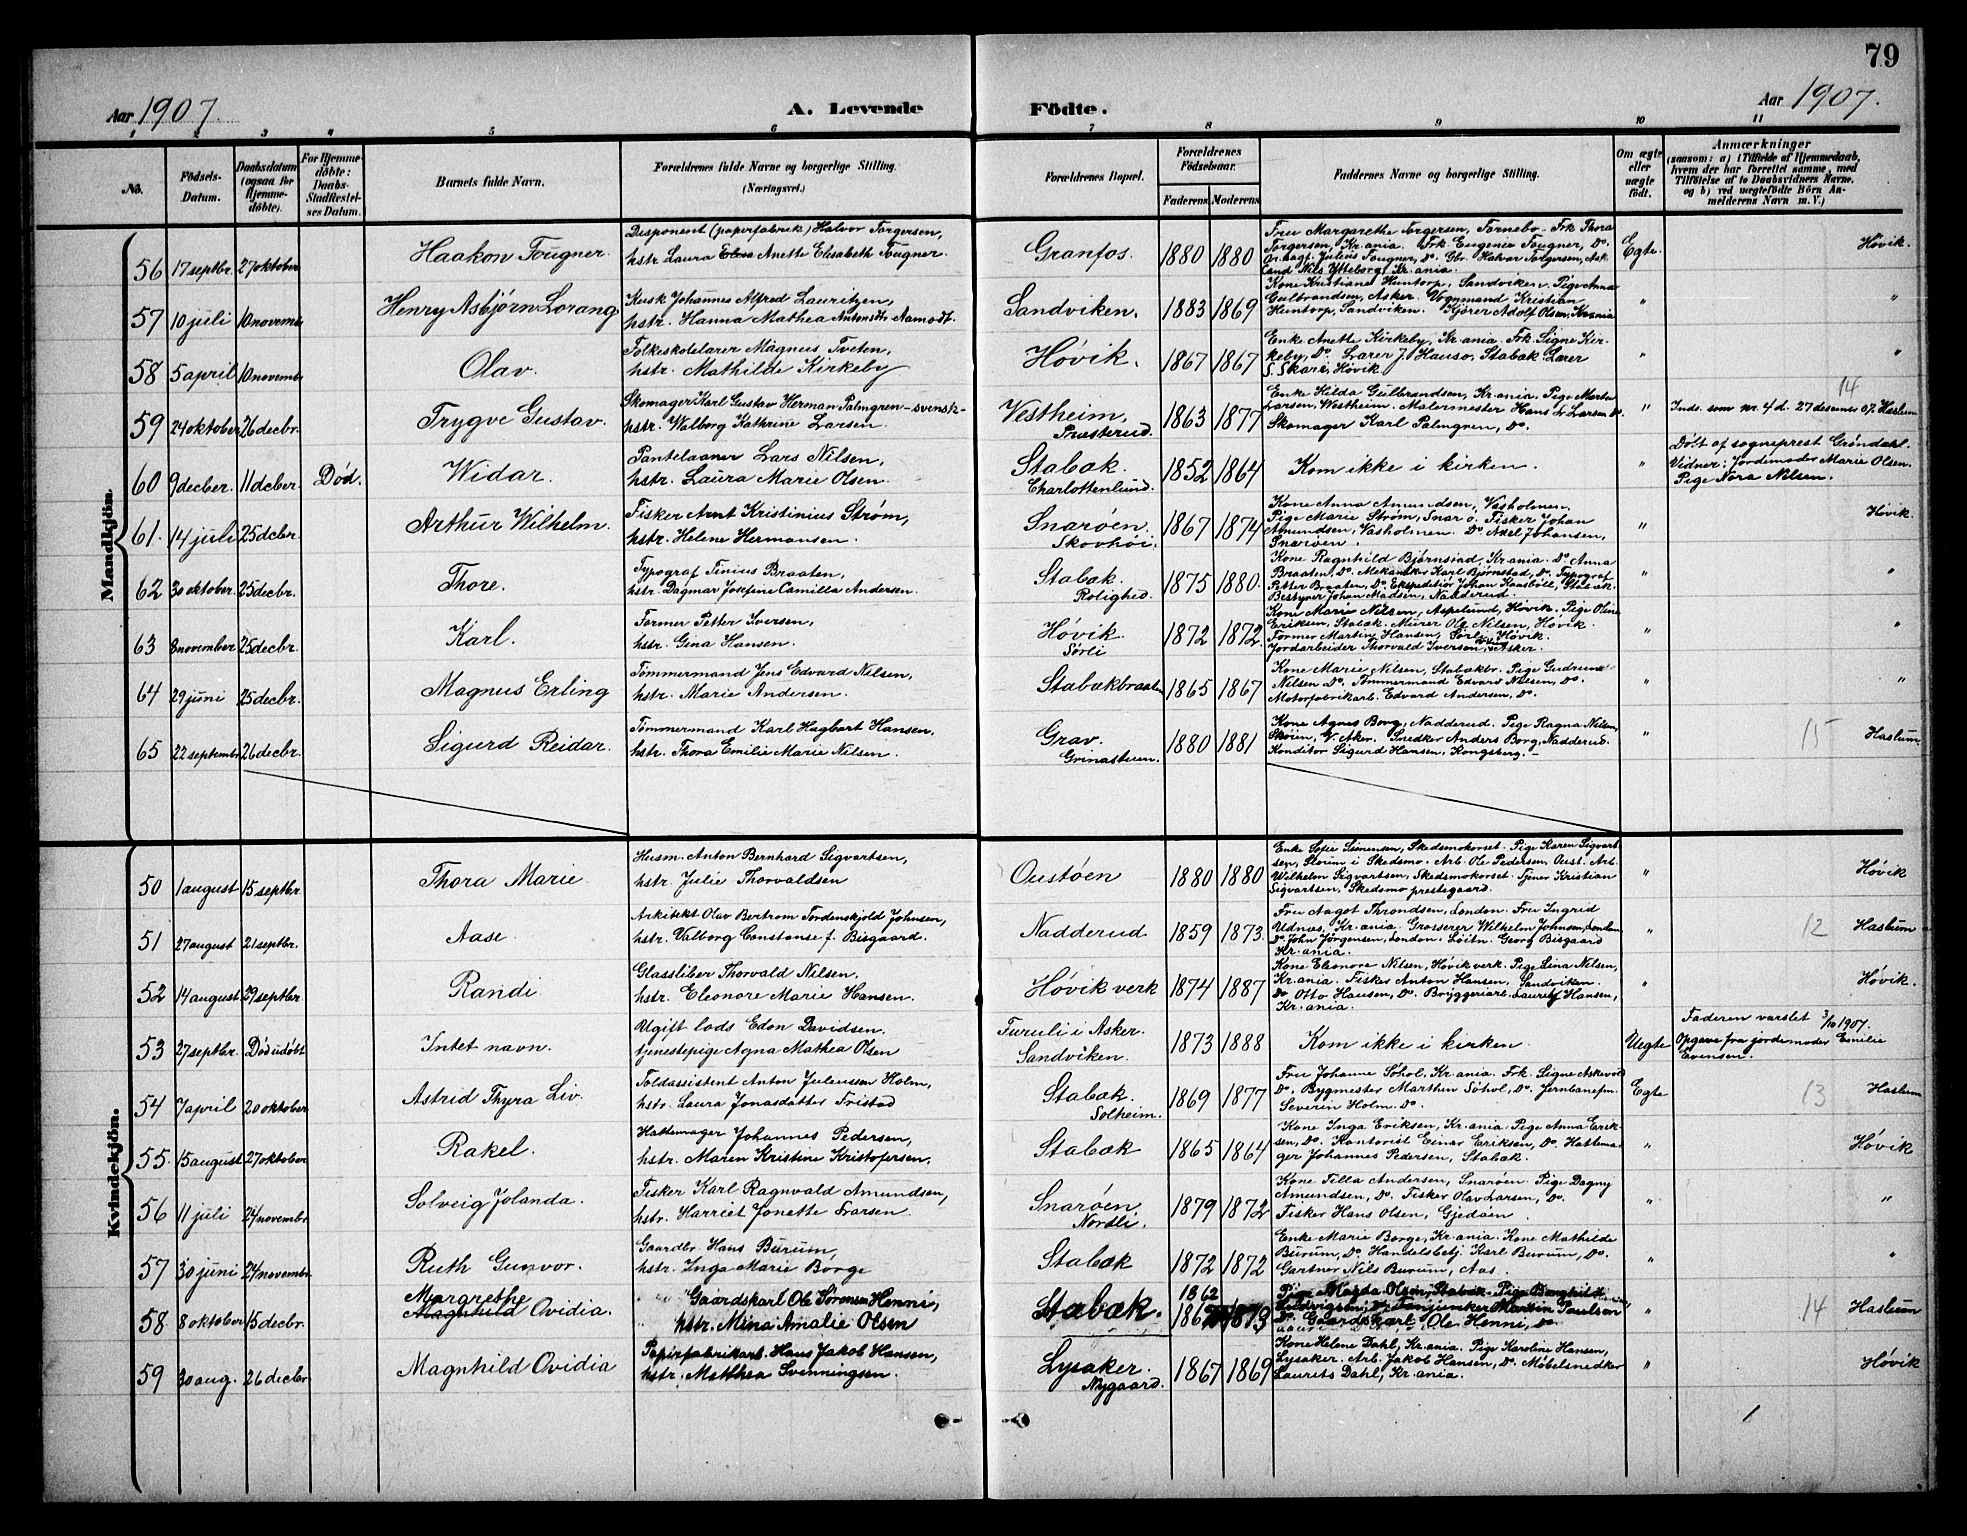 79
Aar 1907.
A. Levende
Födte.
Aar 1907.
1 2 3 " 5 6 7 8 9 10 11
No.
Födsels-Datum.
Daabsdatum (ogsaa for Hjemme-döbte).
For Hjemme-döbte: Daabs-Stadfæstel-ses Datum.
Barnets fulde Navn.
Forældrenes fulde Navne og borgerlige Stilling.
(Næringsvei.)
Forældrenes Bopæl.
Forældrenes Födselsaar.
Faderens Moderens
Faddernes Navne og borgerlige Stilling.
Om ægte eller uægte födt.
Anmærkninger
(saasom: a) i Tilfælde af Hjemmedaab, hvem der har forrettet samme, med Tilföielse af to Daabsvidners Navne, og b) ved uægtefödte Börn Anmelderens Navn m. V.)
Mandkjön.
56 17 septbr. 27 oktober
Haakon Fougner.
Disponent (papirfabrik) Halvor Torgersen,
hstr. Laura Anette Elisabeth Fougner.
Granfos. 1880 1880
Fru Margarethe Torgersen, Fornebo. Frk Thora
Torgersen, Kr.ania. Frk Eugenie Fougner, Do.
Julius Fougner, Do. Gbr. Halvor Torgersen, Ask
Cand Nils Ytteborg Kr.ania.
Egte. Høvik.
57 10 juli 10 novemb
Henry Asbjørn Lorang
Kusk Johannes Alfred Lauritzen,
hstr. Hanna Mathea Antonsdtr Aamodt.
Sandviken. 1883 1869
Kone Kristiane Huntorp, Sandviken. Pige Anna
Gulbrandsen, Asker. Vognmand Kristian
Huntorp, Sandviken. Kjører Adolf Olsen, Kr.ania
" "
58 5 april 10 novembr
Olav.
Folkeskolelærer Magnus Tveten,
hstr. Mathilde Kirkeby
Høvik. 1867 1867
Enke Anette Kirkeby, Kr.ania. Frk. Signe Kir-
keby, Do. Lærer J. Hauso, Stabæk Lærer
S. Skare, Høvik
" "
59 24 oktober 26 decbr.
Trygve Gustav.
Skomager Karl Gustav Herman Palmgren - svensk -
hstr. Walborg Kathrine Larsen.
Vestheim, Præsterud. 1863 1877
Enke Hilda Gulbrandsen, Kr.ania. Pige Marta
Larsen, Vestheim. Malermester Hans L. Larsen Do.
Skomager Karl Palmgren, Do.
" 14
Inds. som nr. 4 d. 27 desember 07. Haslum
60 9 decber. 11 dcber. Død.
Widar.
Pantelaaner Lars Nilsen,
hstr. Laura Marie Olsen.
Stabæk. Charlottenlund. 1852 1864
Kom ikke i kirken.
"
Døbt af sogneprest Grøndahl.
Vidner: Jordemoder Marie Olsen.
Pige Nora Nilsen.
61. 14 juli 25 dcbr.
Arthur Wilhelm.
Fisker Arnt Kristinius Strøm,
hstr. Helene Hermansen.
Snarøen. Skovhøi. 1867 1874
Kone Anna Amundsen, Vasholmen.
Pige Marie Strøm, Snarø. Fisker Johan
Amundsen, Vasholmen. Do Axel Johansen,
Snarøen.
" Høvik.
62 30 oktober. 25 decbr.
Thore.
Typograf Tinius Braaten,
hstr. Dagmar Josefine Camilla Andersen.
Stabæk. Rolighed. 1875 1880
Kone Ragnhild Bjørnstad, Kr.ania. Do Anna
Braaten, Do. Mekaniker Karl Bjørnstad, Do. Typograf
Petter Braaten, Do. Ekspeditiør Johan Kaasbøll, Stabæk.
Bestyrer Johan Madsen, Nadderud.
" "
63 8 november 25 decbr.
Karl.
Former Petter Iversen,
hstr. Gina Hansen.
Høvik. Sørli 1872 1872
Kone Marie Nilsen, Aspelund, Høvik. Pige Oline
Eriksen, Stabæk. Murer Ole Nilsen, Høvik.
Former Martin Hansen, Sørli, Høvik.
Jordarbeider Thorvald Iversen, Asker.
" "
64 29 juni 25 decbr.
Magnus Erling
Tømmermand Jens Edvard Nilsen,
hstr. Marie Andersen.
Stabækbraaten 1865 1867
Kone Marie Nilsen, Stabækbr. Pige Gudrun
Nilsen Do. Tømmermand Edvard Nilsen, Do.
Motorfabrikarb. Edvard Andersen, Do.
" "
65 22 septembr 26 decbr.
Sigurd Reidar.
Tømmermand Karl Hagbart Hansen,
hstr. Thora Emilie Marie Nilsen.
Grav. Grinastuen. 1880 1881
Kone Agnes Borg, Nadderud. Pige Ragna Nilsen,
Skøien, V. Aker. Snedker Anders Borg, Nadderud.
Konditor Sigurd Hansen, Kongsberg. -
" 15 Haslum
Kvindekjön.
50 1 august 15 septbr.
Thora Marie
Husm. Anton Bernhard Sigvartsen,
hstr. Julie Thorvaldsen
Oustøen 1880 1880
Enke Sofie Simensen, Skedsmokorset. Pige Karen Sigvart-
sen, Storum i Skedsmo. Arb. Ole Pedersen, Oust. Arb.
Wilhelm Sigvartsen, Skedsmokorset. Tjener Kristian
Sigvartsen, Skedsmo prestegaard.
" Høvik
51 27 august 21 septbr.
Aase.
Arkitekt Olav Bertrom Tordenskjold Johnsen,
hstr. Valborg Constanse f. Bisgaard.
Nadderud 1859 1873.
Fru Aagot Throndsen, London. Fru Ingrid
Udnæs, Kr.ania. Grosserer Wilhelm Johnsen, London
Do. John Jørgensen, London. Løitn. Georg Bisgaard
Kr.ania.
" 12 Haslum
52 14 august 29 septbr.
Randi.
Glassliber Thorvald Nilsen.
hstr. Eleonore Marie Hansen.
Høvik verk 1874 1887
Kone Eleonore Nilsen, Høvik verk. Pige Lina Nilsen,
Kr.ania. Fisker Anton Hansen, Sandviken.
Do Otto Hansen, Do. Bryggeriarb. Lauritz Hansen,
Kr.ania.
" Høvik.
53 27 septbr. Død udøbt
Intet navn.
Ugift lods Edon Davidsen.
tjenestepige Agna Mathea Olsen
Furuli i Asker. Sandviken. 1873 1888
Kom ikke i kirken.
Uegte
Faderen varslet 3/10 1907.
Opgave fra jordemoder Emilie
Evensen.
54 7 april 20 oktober
Astrid Thyra Liv.
Toldassistent Anton Juliussen Holm,
hstr. Laura Jonasdatter Fristad
Stabæk. Solheim. 1869 1877
Fru Johanne Søhol, Kr.ania. Frk. Signe Askevold
Do. Bygmester Marthin Søhol, Do. Jernbanefm.
Severin Holm. Do.
Egte 13 Haslum
55. 15 august 27 oktober
Rakel.
Hattemager Johannes Pedersen,
hstr. Maren Kristine Kristofersen.
Stabæk 1865 1864
Kone Inga Eriksen, Kr.ania. Pige Anna Erik-
sen, Do. Kontorist Einar Eriksen, Do. Hattema-
ger Johannes Pedersen, Stabæk.
" Høvik
56 11 juli 24 novembr
Solveig Jolanda.
Fisker Karl Ragnvald Amundsen,
hstr. Harriet Jonette Larsen.
Snarøen. Nordli. 1879 1872
Kone Tilla Andersen, Snarøen. Pige Dagny
Amundsen, Do. Fisker Olav Larsen, Do.
Fisker Hans Olsen, Gjedøen.
" "
57 30 juni 24 novembr
Ruth Gunvor.
Gaardbr. Hans Burum,
hstr. Inga Marie Borge
Stabæk 1872 1872
Enke Marie Borge, Kr.ania. Kone Mathilde
Burum, Do. Handelsbetj. Karl Burum, Do.
Gartner Nils Burum, Aas.
" "
58 8 oktober 15 decbr.
Margrethe
Magnhild Ovidia.
Gaardskarl Ole Sørensen Henni,
hstr. Mina Amalie Olsen
Stabæk. 1862 1873
Pige Magda Olsen, Stabæk. Pige
Martin Paulsen
Do. Gaardskarl Ole Henni, Do.
" 14 Haslum
59 30 aug. 26 decbr
Magnhild Ovidia
Papirfabrikarb. Hans Jakob Hansen,
hstr. Matthea Svenningsen.
Lysaker. Nygaard. 1867 1869
Kone Helene Dahl, Kr.ania. Pige Karoline Hansen,
Lysaker. Arb. Jakob Hansen, Do. Møbelsnedker
Laurits Dahl, Kr.ania.
" Høvik